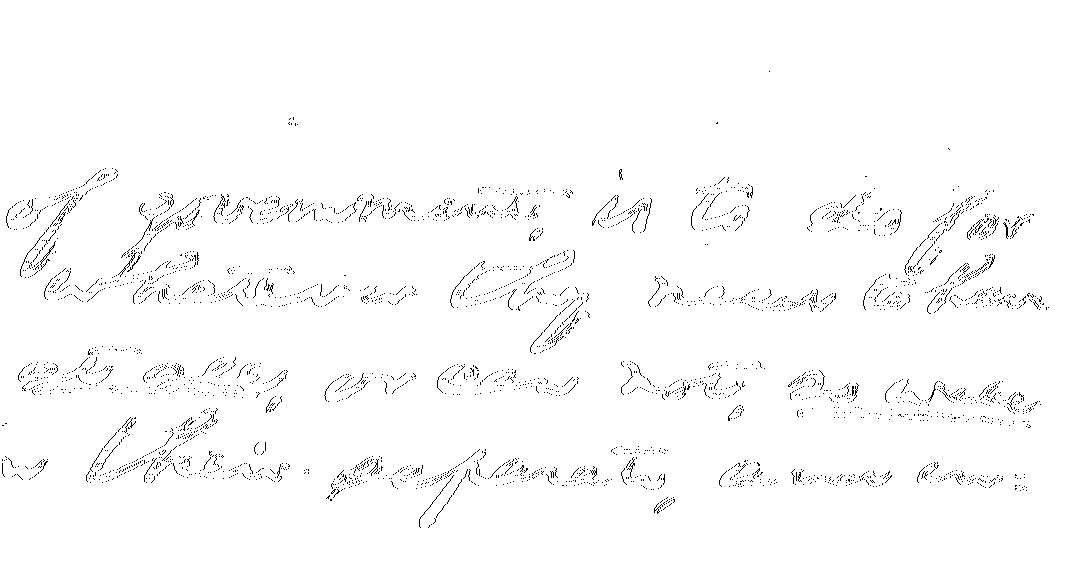 of government, is to do for
whatever they need to have
at all, or can not, so well
their separate,